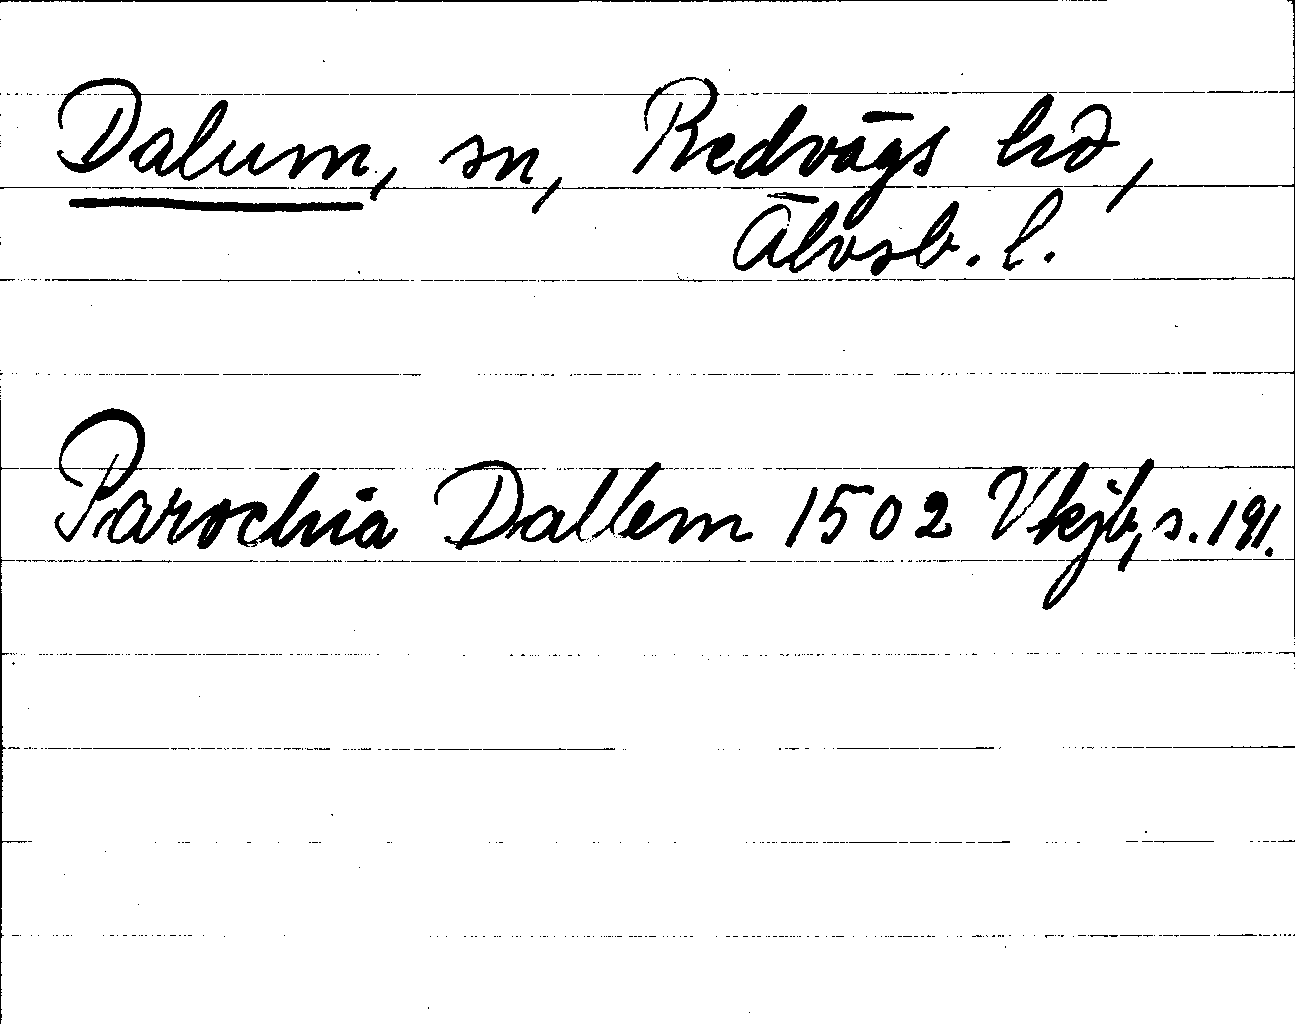 Dalum, sn, Redvägs hd,
Älvsb. l.
Parochia Dallem 1502 Vkjb, s. 191.